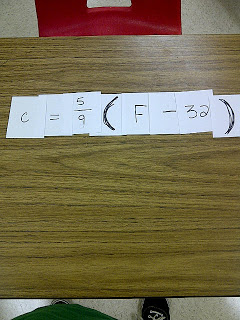 C = 5/9 ( F - 32 )